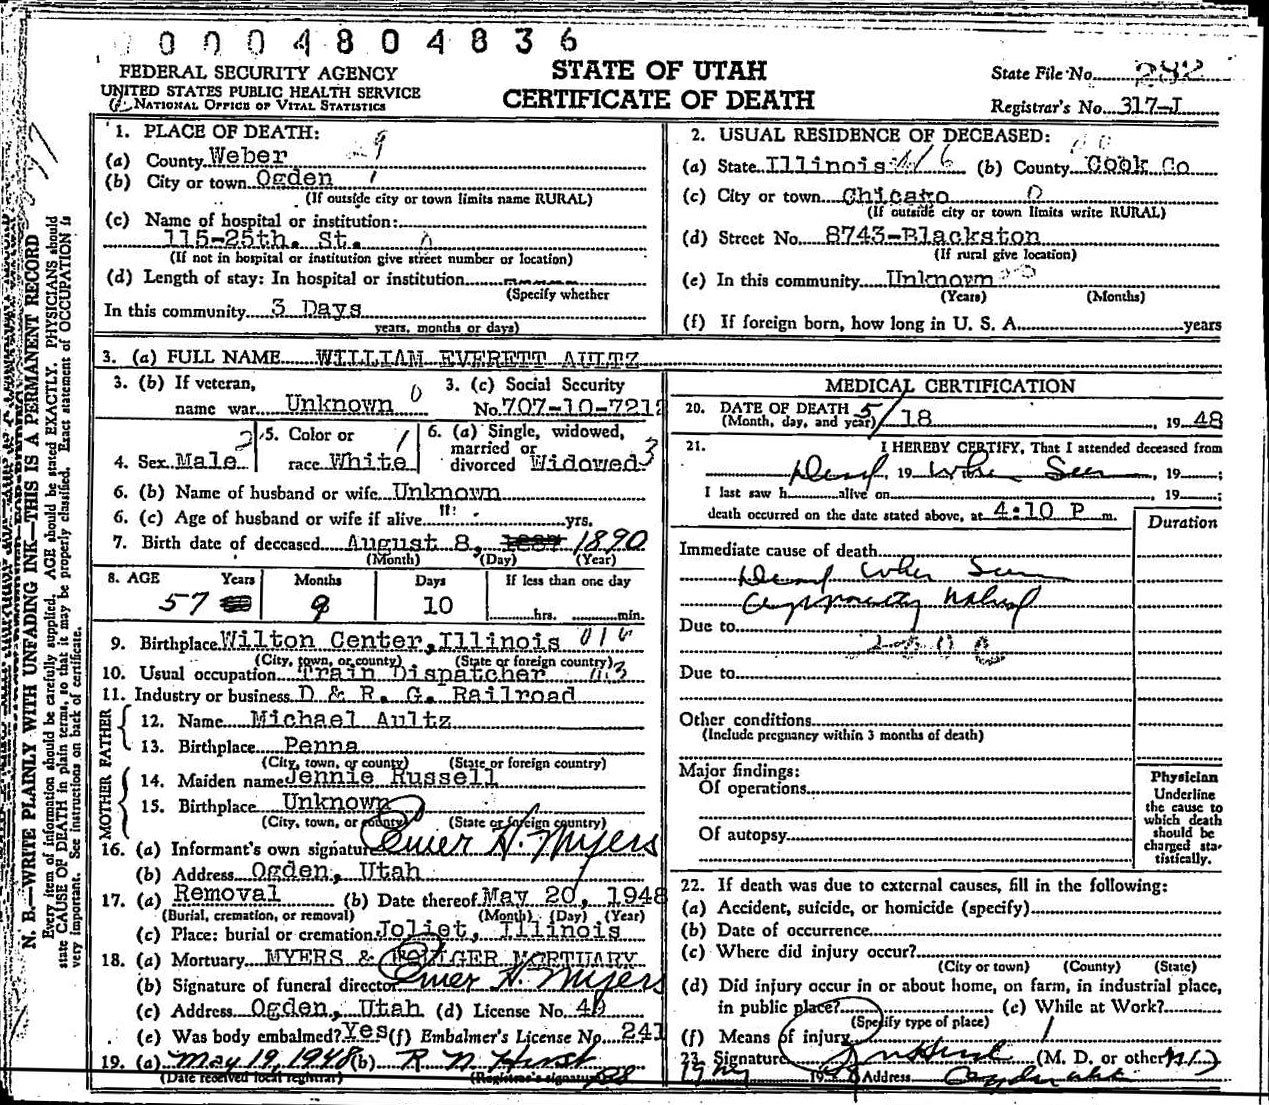 0004804836
FEDERAL SECURITY AGENCY
UNITED STATES PUBLIC HEALTH SERVICE
NATIONAL OFFICE OF VITAL STATISTICS
STATE OF UTAH
CERTIFICATE OF DEATH
State File No. 282
Registrar's No. 317-J
N. B.—WRITE PLAINLY WITH UNFADING INK—THIS IS A PERMANENT RECORD
Every item of information should be carefully supplied. AGE should be stated EXACTLY. PHYSICIANS should
state CAUSE OF DEATH in plain terms, so that it may be properly classified. Exact statement of OCCUPATION is
very important. See instructions on back of certificate.
1. PLACE OF DEATH:
(a) County Weber
(b) City or town Ogden
(If outside city or town limits name RURAL)
(c) Name of hospital or institution:
115-25th. St.
(If not in hospital or institution give street number or location)
(d) Length of stay: In hospital or institution -----
(Specify whether
In this community 3 Days
years, months or days)
2. USUAL RESIDENCE OF DECEASED:
(a) State Illinois (b) County Cook Co
(c) City or town Chicaro
(If outside city or town limits write RURAL)
(d) Street No. 8743-Blackston
(If rural give location)
(e) In this community Unknown
(Years) (Months)
(f) If foreign born, how long in U. S. A. years
3. (a) FULL NAME WILLIAM EVERETT AULTZ
3. (b) If veteran,
name war Unknown
3. (c) Social Security
No. 707-10-7212
4. Sex Male
5. Color or
race White
6. (a) Single, widowed,
married or
divorced Widowed
6. (b) Name of husband or wife Unknown
6. (c) Age of husband or wife if alive "" yrs.
7. Birth date of deceased August 8, 1890
(Month) (Day) (Year)
8. AGE Years Months Days If less than one day
57 9 10 hrs. min.
9. Birthplace Wilton Center, Illinois
(City, town, or county) (State or foreign country)
10. Usual occupation Train Dispatcher
11. Industry or business D & R. G. Railroad
FATHER
12. Name Michael Aultz
13. Birthplace Penna
(City, town, or county) (State or foreign country)
MOTHER
14. Maiden name Jennie Russell
15. Birthplace Unknown
(City, town, or county) (State or foreign country)
16. (a) Informant's own signature Elmer H. Myers
(b) Address Ogden, Utah
17. (a) Removal (b) Date thereof May 20, 1948
(Burial, cremation, or removal) (Month) (Day) (Year)
(c) Place: burial or cremation Joliet, Illinois
18. (a) Mortuary MYERS & MORTUARY
(b) Signature of funeral director Elmer H. Myers
(c) Address Ogden, Utah (d) License No. 40
(e) Was body embalmed? Yes (f) Embalmer's License No. 241
19. (a) May 19, 1948 (b) R N Hirst
(Date received local registrar) (Registrar's signature)
MEDICAL CERTIFICATION
20. DATE OF DEATH 5/18 1948
(Month, day, and year)
21. I HEREBY CERTIFY, That I attended deceased from
Dead, 19 When Seen, 19 ;
I last saw h alive on , 19 ;
death occurred on the date stated above, at 4:10 P m.
Duration
Immediate cause of death
Dead When Seen
Due to
Due to
Other conditions
(Include pregnancy within 3 months of death)
Major findings:
Of operations
Of autopsy
Physician
Underline
the cause to
which death
should be
charged sta-
tistically.
22. If death was due to external causes, fill in the following:
(a) Accident, suicide, or homicide (specify)
(b) Date of occurrence
(c) Where did injury occur?
(City or town) (County) (State)
(d) Did injury occur in or about home, on farm, in industrial place,
in public place? (e) While at Work?
(Specify type of place)
(f) Means of injury
23. Signature (M. D. or other) MD
Address Ogden Utah